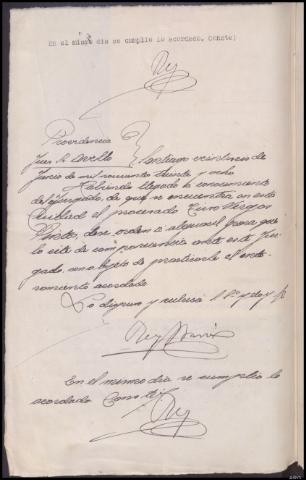 En el mismo dia se cumplió lo acordado. Conste;
Rey
Providencia
Juez Sr. Santiago veintitres de
Junio de mil novecientos treinta y ocho
Habiendo llegado a conocimiento
del Juzgado, de que se encuentra en esta
Ciudad el procesado
Prieto, dese orden a alguacil para que
lo cite de comparecencia ante este Juz
gado, con objeto de practicarle el
acordado.
Lo dispuso y rubrica S. Sª y doy fe
Rey
En el mismo dia se cumplió lo
acordado Conste
Rey